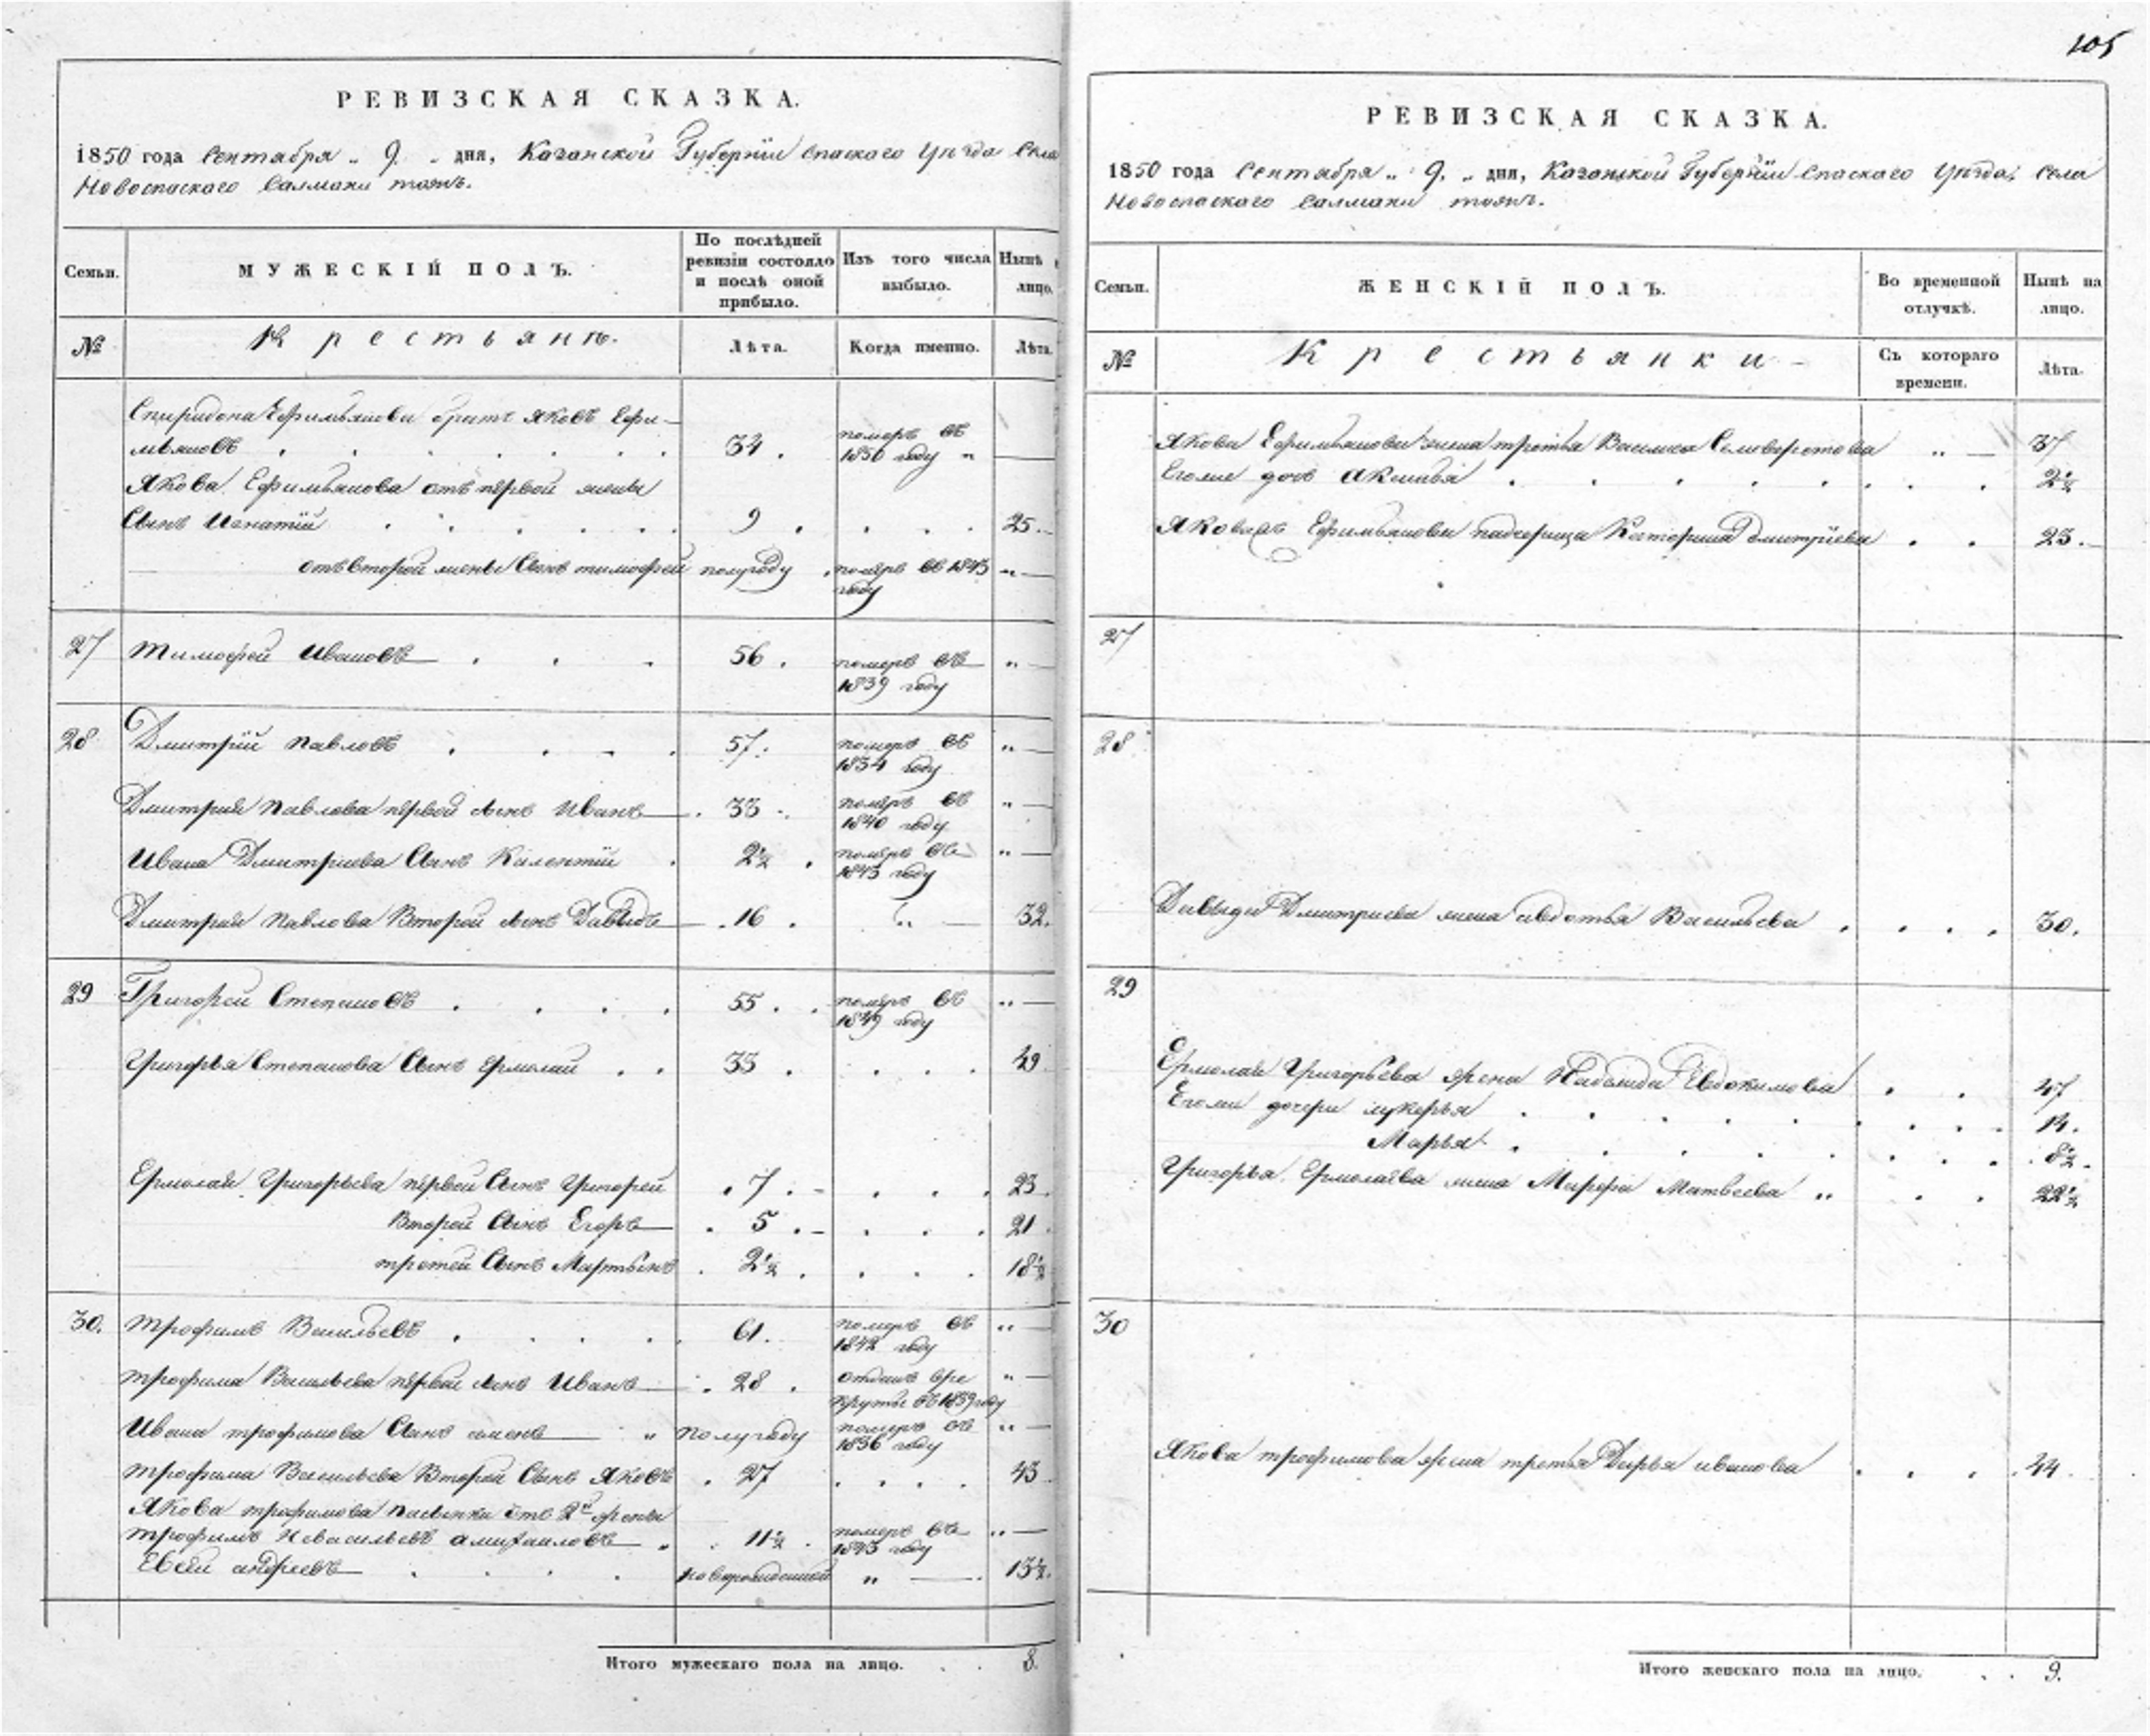 105
РЕВИЗСКАЯ СКАЗКА.
1850 года Сентября „ 9. „ дня, Казанской Губернїи Спаскаго Уѣзда Села
Новоспаскаго Салманы тожъ.
Семьи.
МУЖЕСКІЙ ПОЛЪ.
По послѣдней ревизіи состояло и послѣ оной прибыло.
Изъ того числа выбыло.
Нынѣ
лицо.
№
Крестьянѣ.
Лѣта.
Когда именно.
Лѣта.
Спиридона Ефимьянова братъ Яковъ Ефи-
мьяновъ 34. померъ въ 1850 году „
Якова Ефимьянова отъ первой жены
Сынъ Игнатїй 9 25.
отъ второй жены Сынъ тимофей полугоду померъ въ 1843 году „
27 Тимофей Ивановъ 56. померъ въ 1839 году „
28 Дмитрїй Павловъ 57. померъ въ 1834 году „
Дмитрия Павлова первой сынъ Иванъ 33 померъ въ 1840 году „
Ивана Дмитриева Сынъ 2½ померъ въ 1843 году „
Дмитрия Павлова Второй сынъ Давыдъ 16 „ 32.
29 Григорей Степановъ 55. померъ въ 1849 году „
Григорья Степанова Сынъ Ермолай 33 49
Ермолая Григорьева первой Сынъ Григорей 7 23
Второй Сынъ Егоръ 5 21
третей Сынъ Мартынъ 2½ 18½
30. Трофимъ Васильевъ 61. померъ въ 1842 году „
трофима Васильева первой сынъ Иванъ 28 отданъ вре круты въ 1839 году „
Ивана трофимова Сынъ семенъ „ полугоду померъ въ 1836 году „
трофима Васильева Второй Сынъ Яковъ 27 43
Якова трофимова пасынки отъ 2й жены
трофимъ 11½ померъ въ 1843 году „
Евсей андреевъ новорожденной „ 13½.
Итого мужескаго пола на лицо. 8.
РЕВИЗСКАЯ СКАЗКА.
1850 года Сентября „ 9. „ дня, Казанской Губернїи Спаскаго Уѣзда, Села
Новоспаскаго Салманы тожъ.
Семьи.
ЖЕНСКІЙ ПОЛЪ.
Во временной отлучкѣ.
Нынѣ на лицо.
№
Крестьянки
Съ котораго времени.
Лѣта.
Якова Ефимьянова жена третья Василиса „ 37
Еголие дочь Аксинья 2½
Якова Ефимьянова падчерица Катерина Дмитрїева 23.
27
28
Давыда Дмитриева жена авдотья Васильева 30.
29
Ермолая Григорьева жена Евдокимова 47
Еголие дочери лукерья 14.
Марья 8½.
Григорья Ермолаева жена Марфа Матвеева „ 22½
30
Якова трофимова жена третья Дарья иванова 44
Итого женскаго пола на лицо. 9.